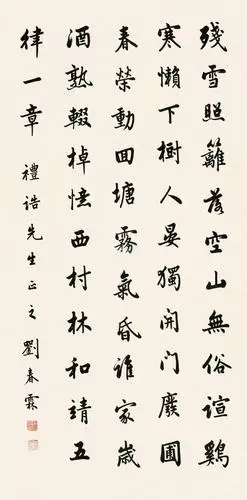 殘雪照籬落空山無俗諠雞
寒懶下樹人晏獨開門廢圃
春榮動囬塘霧氣昏誰家歲
酒熟輟棹憶西村林和靖五
律一章 禮誥先生正之 劉春霖